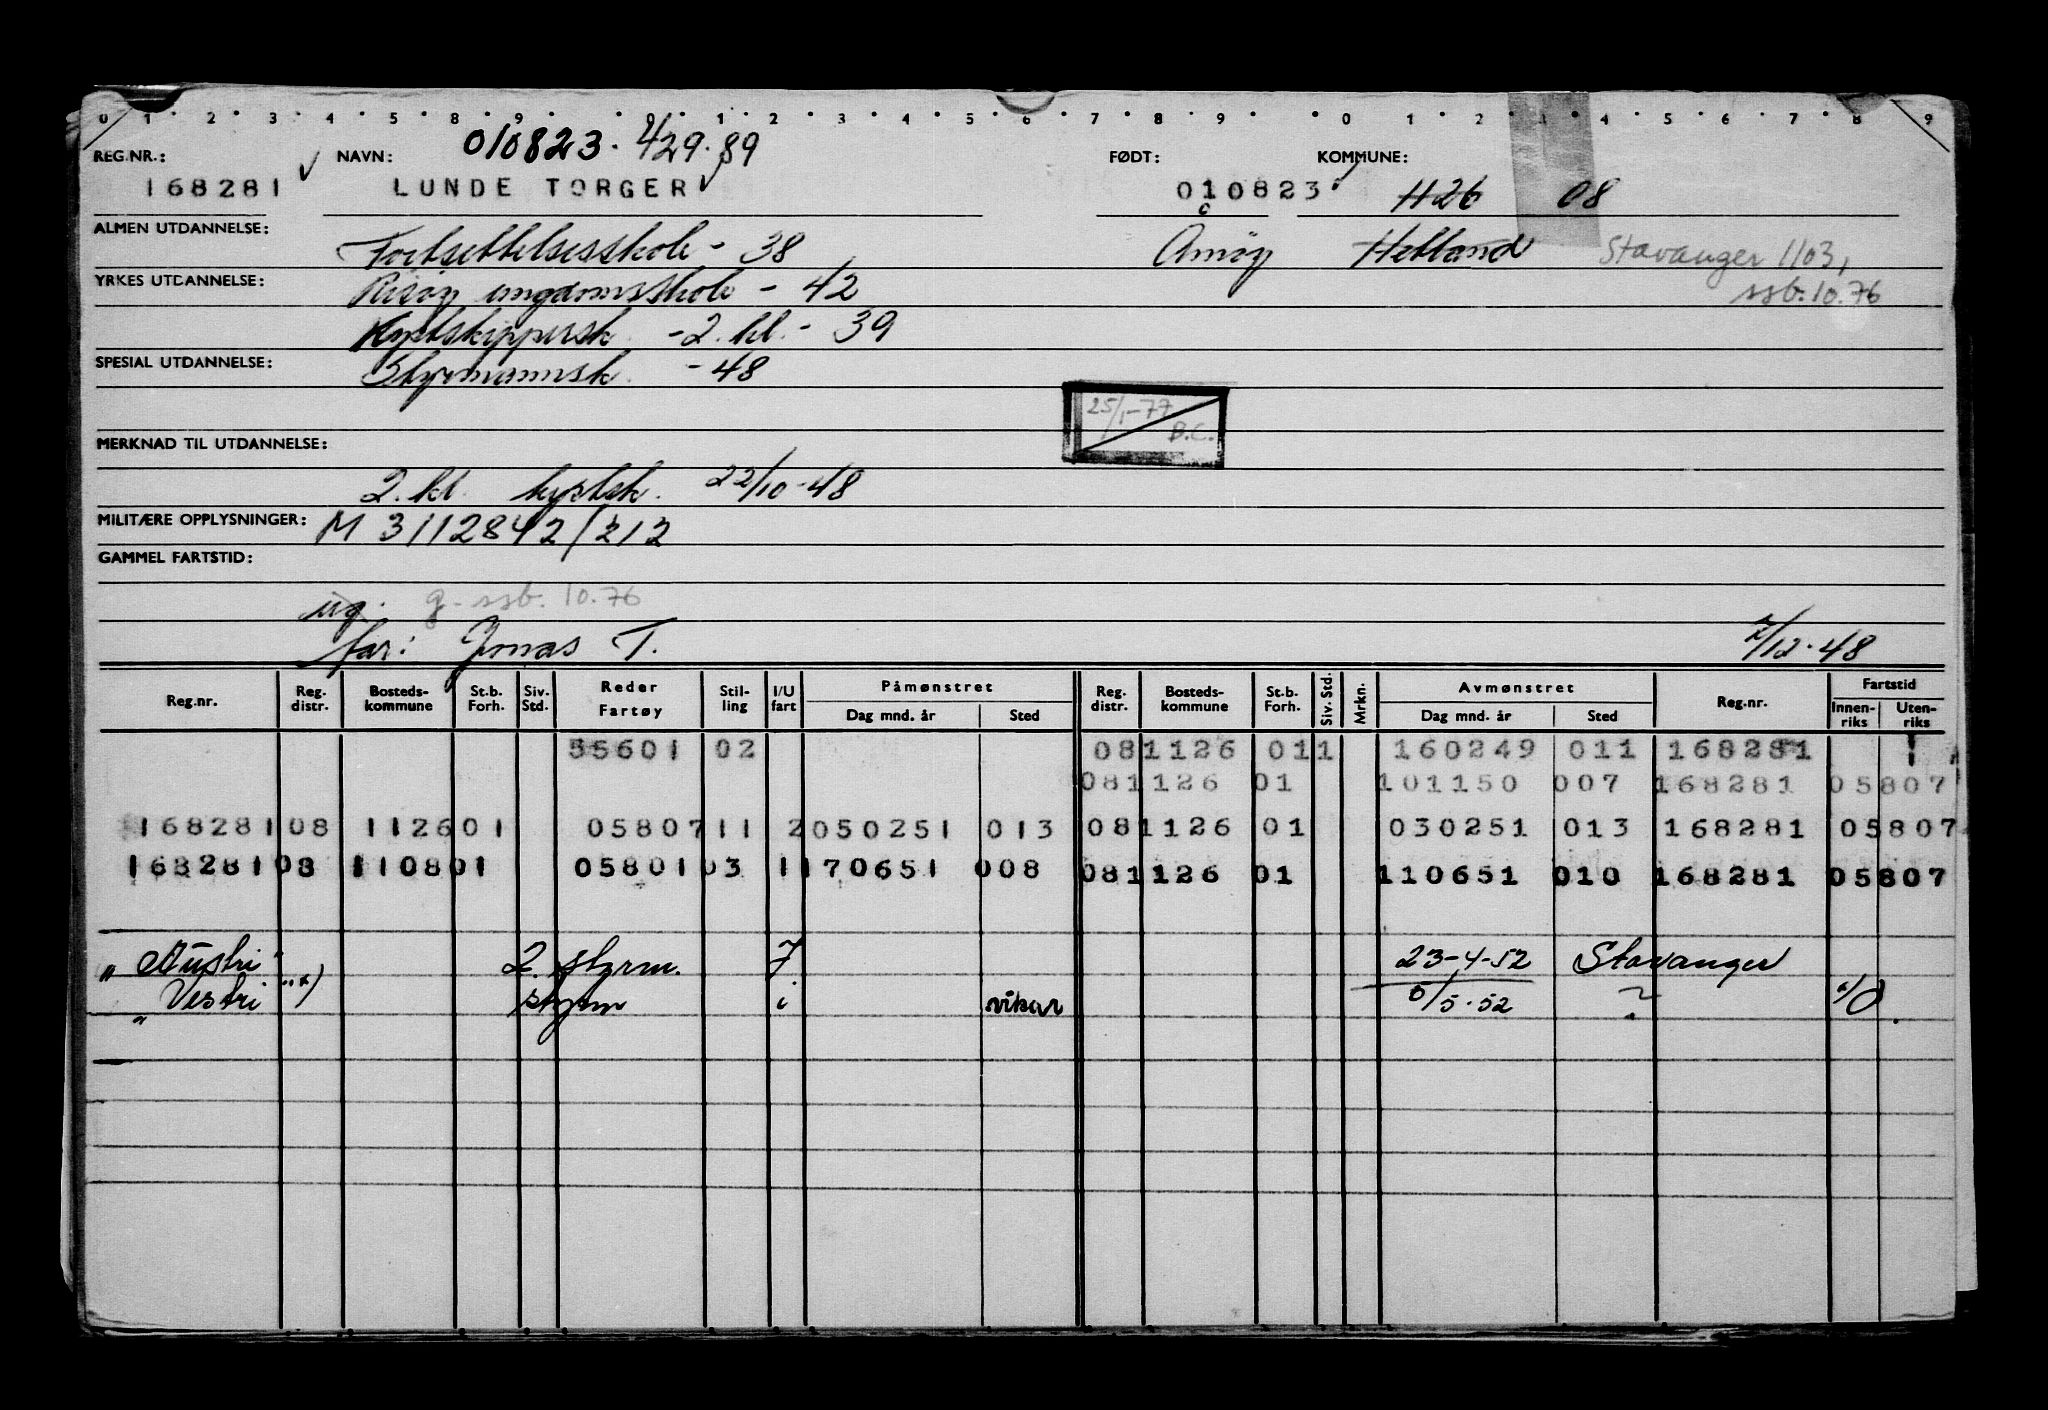 0 1 2 3 4 5 8 9 0 1 2 3 4 5 6 7 8 9 0 1 2 3 4 5 6 7 8 9
010823. 429.89
REG.NR.: NAVN: FØDT: KOMMUNE:
168281 LUNDE TORGER 010823 1126 08
ALMEN UTDANNELSE: Fortsettelsesskole - 38 Amøy Hetland Stavanger 1103,
YRKES UTDANNELSE: Risøy ungdomsskole - 42 ssb. 10.76
Kystskippersk. - 2. kl. - 39
SPESIAL UTDANNELSE: Styrmannsk. - 48
25/1-77 B.C.
MERKNAD TIL UTDANNELSE:
2. kl. kystsk. 22/10-48
MILITÆRE OPPLYSNINGER: M 3112842/212
GAMMEL FARTSTID:
ug. g. ssb. 10.76
far: Jonas T. 7/12-48
Reg.nr. Reg. distr. Bosteds-kommune St.b. Forh. Siv. Std. Reder Fartøy Stil-ling I/U fart Påmønstret Dag mnd. år Sted Reg. distr. Bosteds-kommune St.b. Forh. Siv. Std. Mrkn. Avmønstret Dag mnd. år Sted Reg.nr. Fartstid Innen-riks Uten-riks
55601 02 081126 011 160249 011 168281 1
081126 01 101150 007 168281 05807
168281 08 1126 01 05807 11 2 050251 013 081126 01 030251 013 168281 05807
168281 08 1108 01 05801 03 1 170651 008 081126 01 110651 010 168281 05807
"Austri" 2. styrm. 23-4-52 Stavanger
"Vestri" styrm i vikar 5/5-52 ?